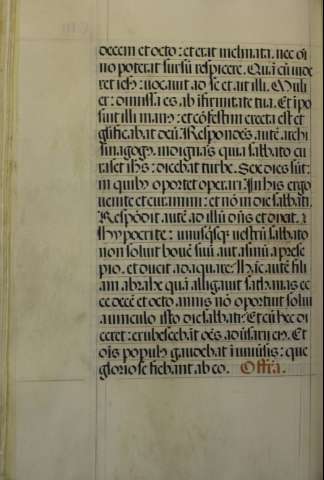 decem et octo: et erat inclinata. nec oı̄
no poterat sursū respicere. Quā cū vide
ret ieſ: vocavit ad se et ait illi. Muli
er: dimissa es ab ifirmitate tua. Et īpo
suit illi man⁹: et cōfestim erecta est et
glificabat deū. Respondēs autē archi
sinagog⁹ indignās quia sabbato cu
raset ihs: dicebat turbe. Sex dies sūt:
in quib⁹ oportet operari. In his ergo
venite et curamini: et nō in die sabbati.
Respōdit autē ad illū dn̄s et dixit.
Hypocrite: unusq̄sq̄ vestrū sabbato
non solvit bovē suū aut asinū a prese
pio. et ducit adaquare. Hāc autē fili
am abrahe quā alligavit sathanas ec
ce decē et octo annis nō oportuit solvi
a vinculo isto die sabbati. Et cū hec di
ceret: erubescebāt oēs adūsarij ei⁹. Et
oīs popul⁹ gaudebat ī univsis: que
gloriose fiebant ab eo. Offra.